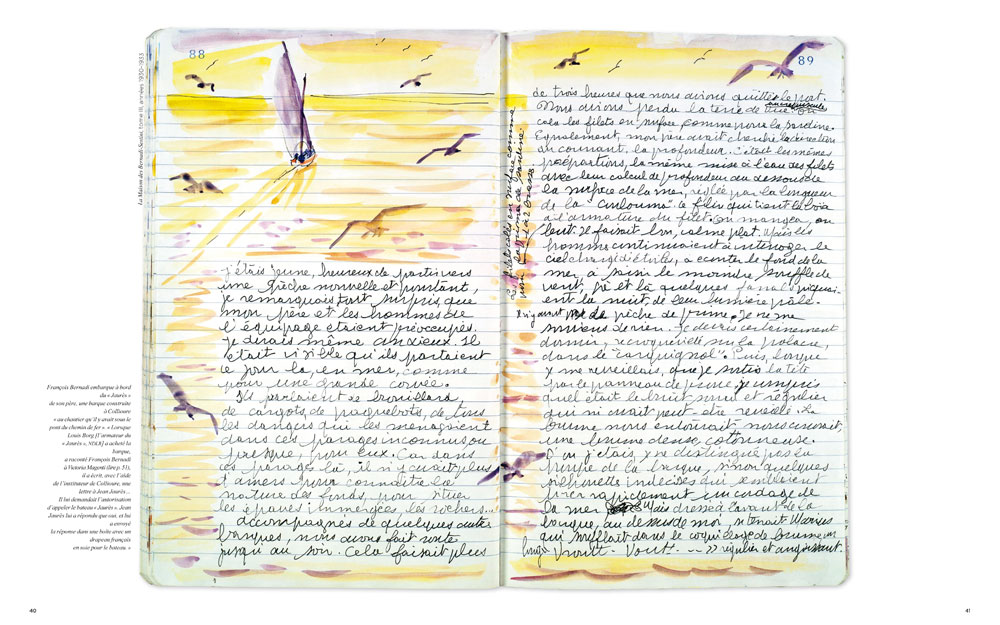 La Maison des Bernadi-Sentat, Livre III, années 1930-1933
88
j'étais jeune, heureux de partir vers
une pêche nouvelle et pourtant,
je remarquais tout surpris, que
mon père et les hommes de
l'équipage étaient préoccupés.
Je dirais même anxieux. Il
était visible qu'ils partaient
ce jour là, en mer, comme
pour une grande corvée.
Ils parlaient de brouillard,
de cargots, de paquebots, de tous
les dangers qui les menaçaient
dans ces parages inconnus ou
presque, pour eux. Car dans
ces parages là, il n'y avait plus
d'amers pour connaître la
nature des fonds, pour situer
les épaves immergées, les rochers...
Accompagnés de quelques autres
barques, nous avons fait route
jusqu'au soir. Cela faisait plus
François Bernadi embarque à bord
du « Jaurès »
de son père, une barque construite
à Collioure
« au chantier qu'il y avait sous le
pont du chemin de fer ». « Lorsque
Louis Borg [l'armateur du
« Jaurès », NDLR] a acheté la
barque,
a raconté François Bernadi
à Victoria Magenti (lire p. 53),
il a écrit, avec l'aide
de l'instituteur de Collioure, une
lettre à Jean Jaurès...
Il lui demandait l'autorisation
d'appeler le bateau « Jaurès ». Jean
Jaurès lui a répondu que oui, et lui
a envoyé
la réponse dans une boîte avec un
drapeau français
en soie pour le bateau. »
40
89
de trois heures que nous avions quitté le port.
Nous avions perdu la terre de vue. On
cala les filets en surface comme pour la sardine.
Egalement, mon père avait cherché la direction
du courant, la profondeur. C'était les mêmes
préparations, la même mise à l'eau des filets
avec leur calcul de profondeur au dessous de
la surface de la mer, réglée par la longueur
de la ". ce filin qui tient le
à l'armature du filet. On mangea, on
but. Il faisait bon, calme plat. Mais les
hommes continuaient à interroger le
ciel chargé d'étoiles, à écouter le fond de la
mer, à saisir le moindre souffle de
vent, çà et là quelques fanals piquai-
ent la nuit, de leur lumière pâle.
Il n'y avait pas de pêche de prime. Je ne me
souviens de rien. Je devais certainement
dormir, recroquevillé sur la
dans le "carquignol". Puis, lorsque
je me réveillais, que je sortis la tête
par le panneau de proue, je compris
quel était le bruit sourd et régulier
qui m'avait peut-être réveillé. La
brume nous entourait, nous cernait,
une brume dense, cotonneuse.
D'où j'étais, je ne distinguais pas la
poupe de la barque, sinon quelques
silhouettes indécises qui semblaient
tirer rapidement un cordage de
la mer. Mais dressé à l'avant de la
barque, au dessus de moi, se tenait Marius
qui soufflait dans le coquillage de brume un
long « Vrout - Vout -- » régulier et angoissant.
Les filets calés en surface comme
pour la pêche de sardine.
41